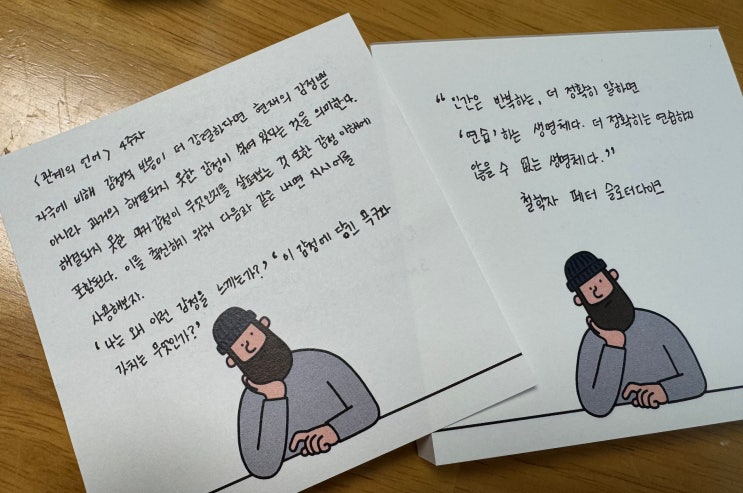 <관계의 언어> 4주차
자극에 비해 감정적 반응이 더 강렬하다면 현재의 감정뿐
아니라 과거의 해결되지 못한 감정이 섞여 왔다는 것을 의미한다.
해결되지 못한 과거 감정이 무엇인지를 살펴보는 것 또한 감정 이해에
포함된다. 이를 촉진하기 위해 다음과 같은 내면 지시어를
사용해보자.
'나는 왜 이런 감정을 느끼는가?' '이 감정에 담긴 욕구와
가치는 무엇인가?'
"인간은 반복하는, 더 정확히 말하면
'연습'하는 생명체다. 더 정확히는 연습하지
않을 수 없는 생명체다."
철학자 페터 슬로터다이크